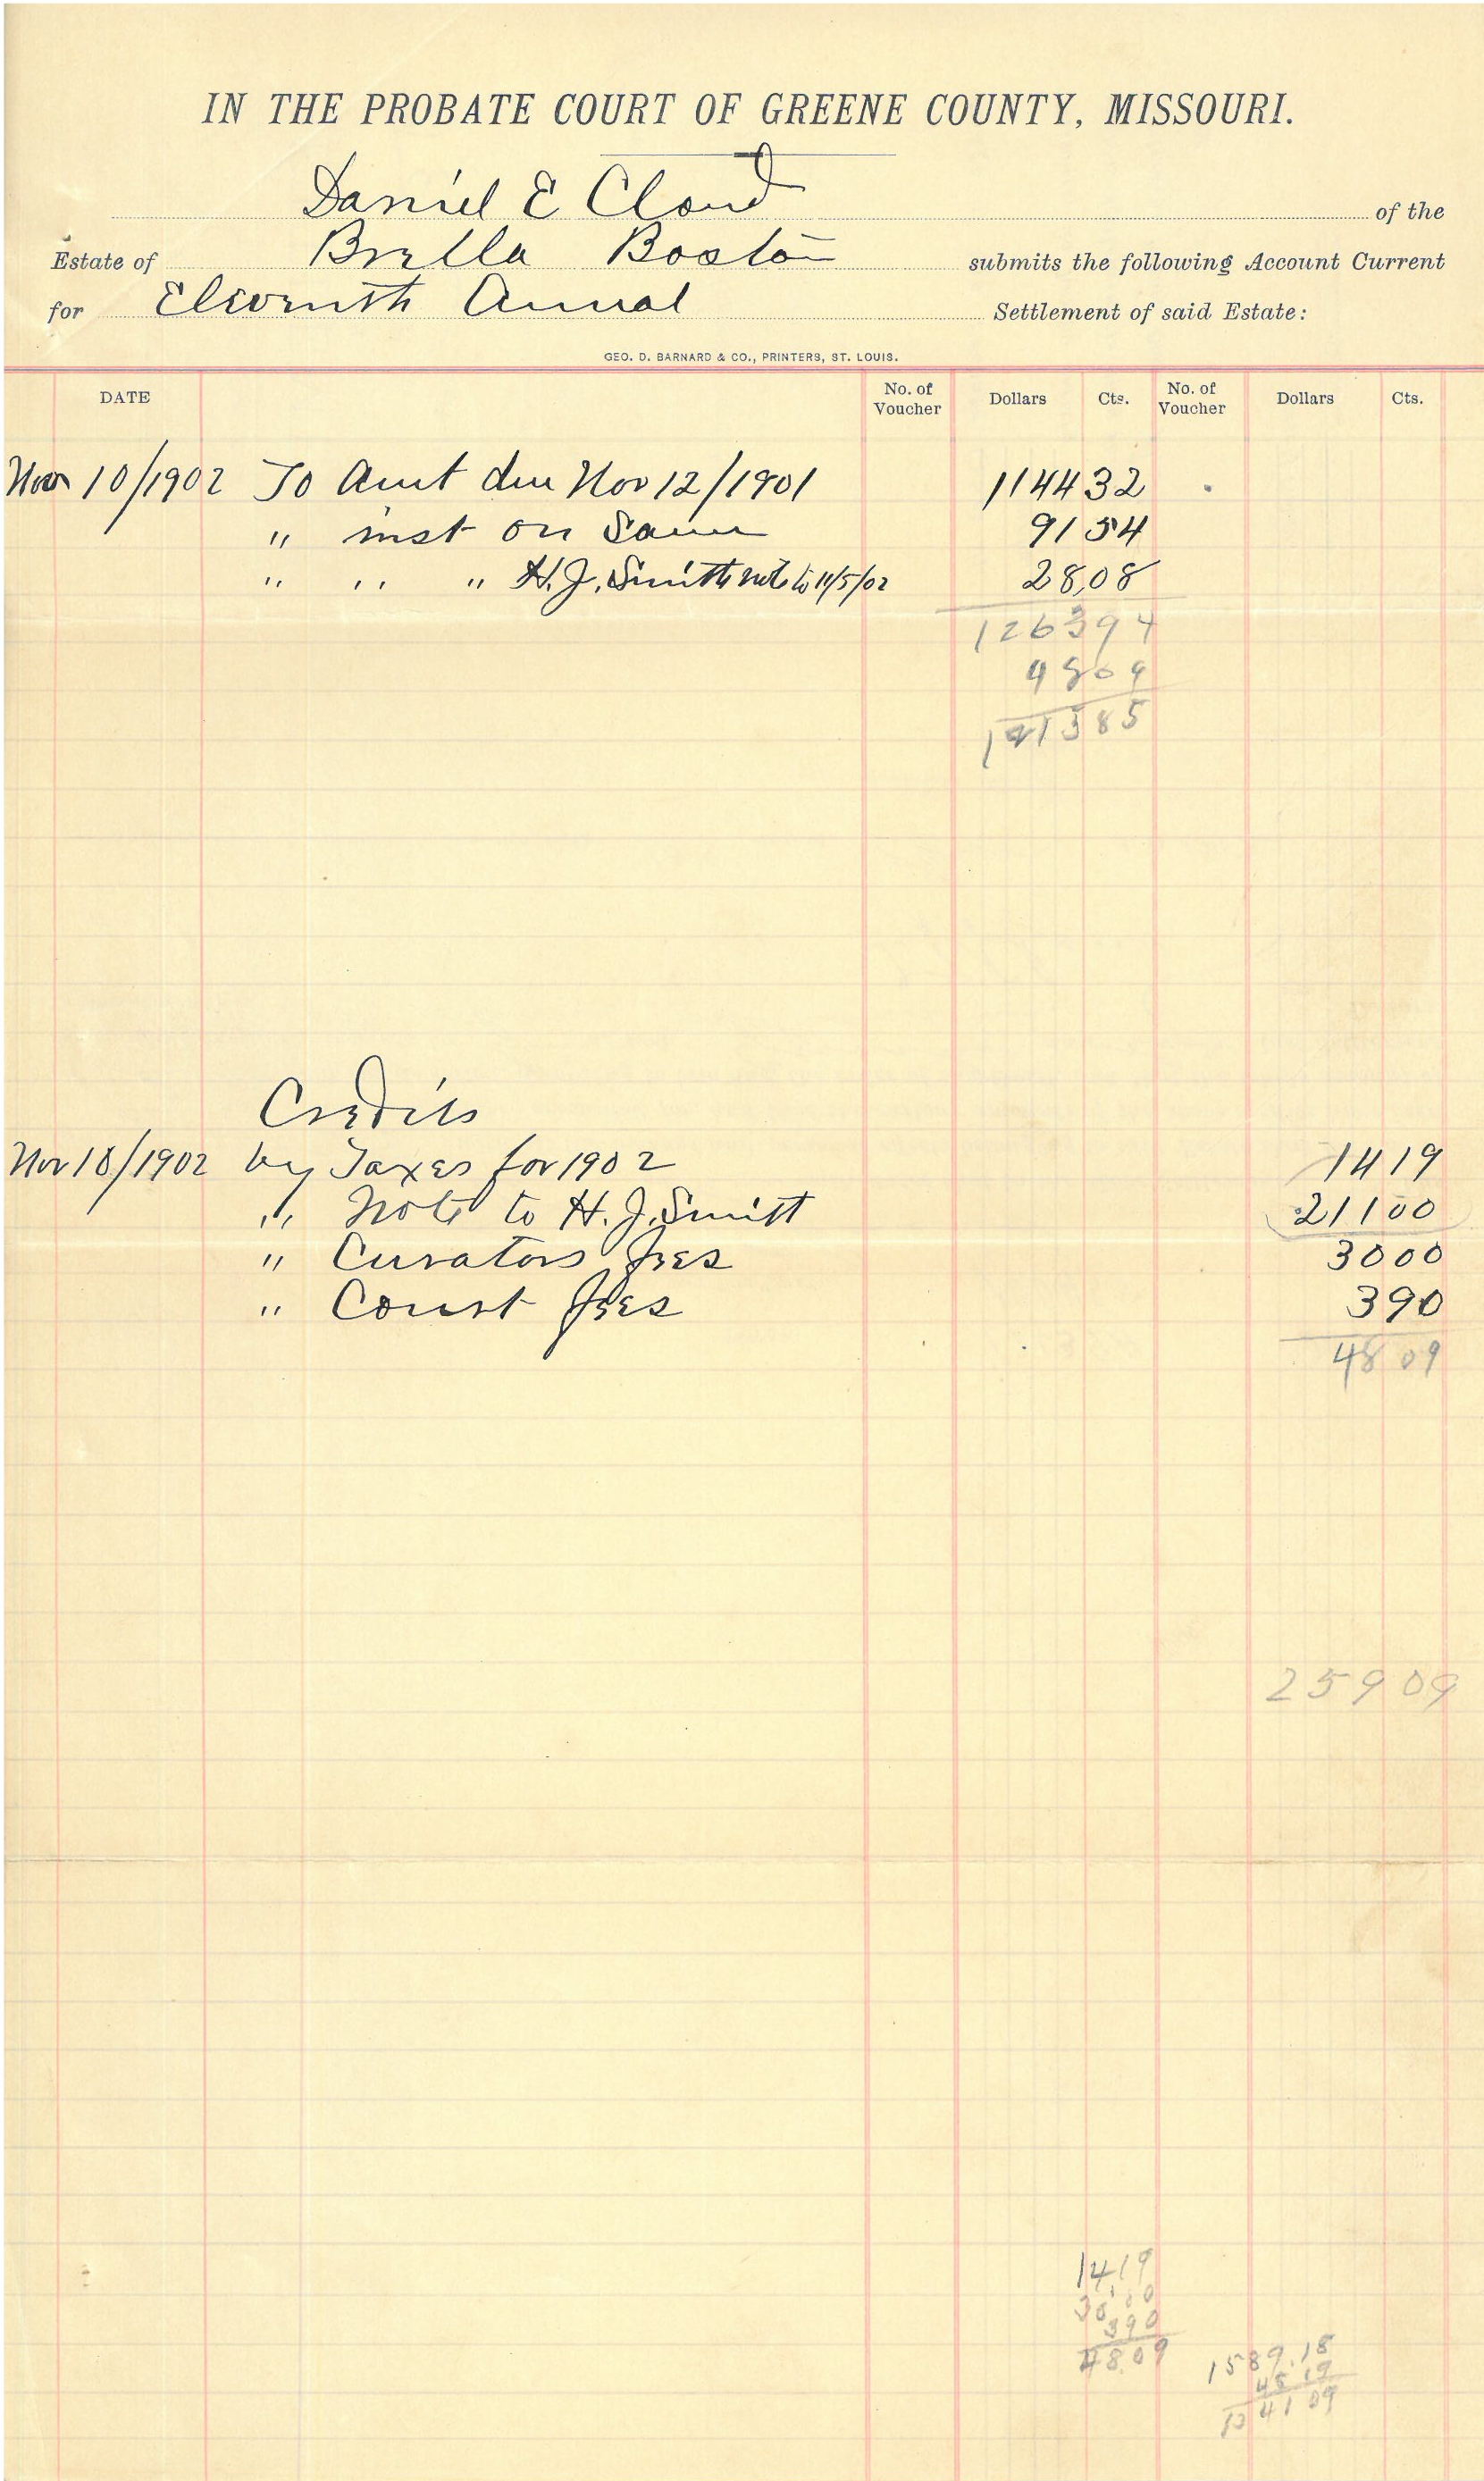 IN THE PROBATE COURT OF GREENE COUNTY, MISSOURI.
Daniel E Cloud of the
Estate of Brella Boston submits the following Account Current
for Eleventh Annual Settlement of said Estate:
GEO. D. BARNARD & CO., PRINTERS, ST. LOUIS.
DATE No. of Voucher Dollars Cts. No. of Voucher Dollars Cts.
Nov 10/1902 To Amt due Nov 12/1901 1144 32
" inst on Same 91 54
" " " H. J. Smith note to 11/5/02 28,08
1263 94
48 09
1 1385
Credits
Nov 10/1902 by Taxes for 1902 14 19
" Note to H. J. Smith 211 00
" Curators fees 30 00
" Court fees 3 90
48 09
259 09
14 19
30,00
3 90
48.09
1589.18
48 19
41 09